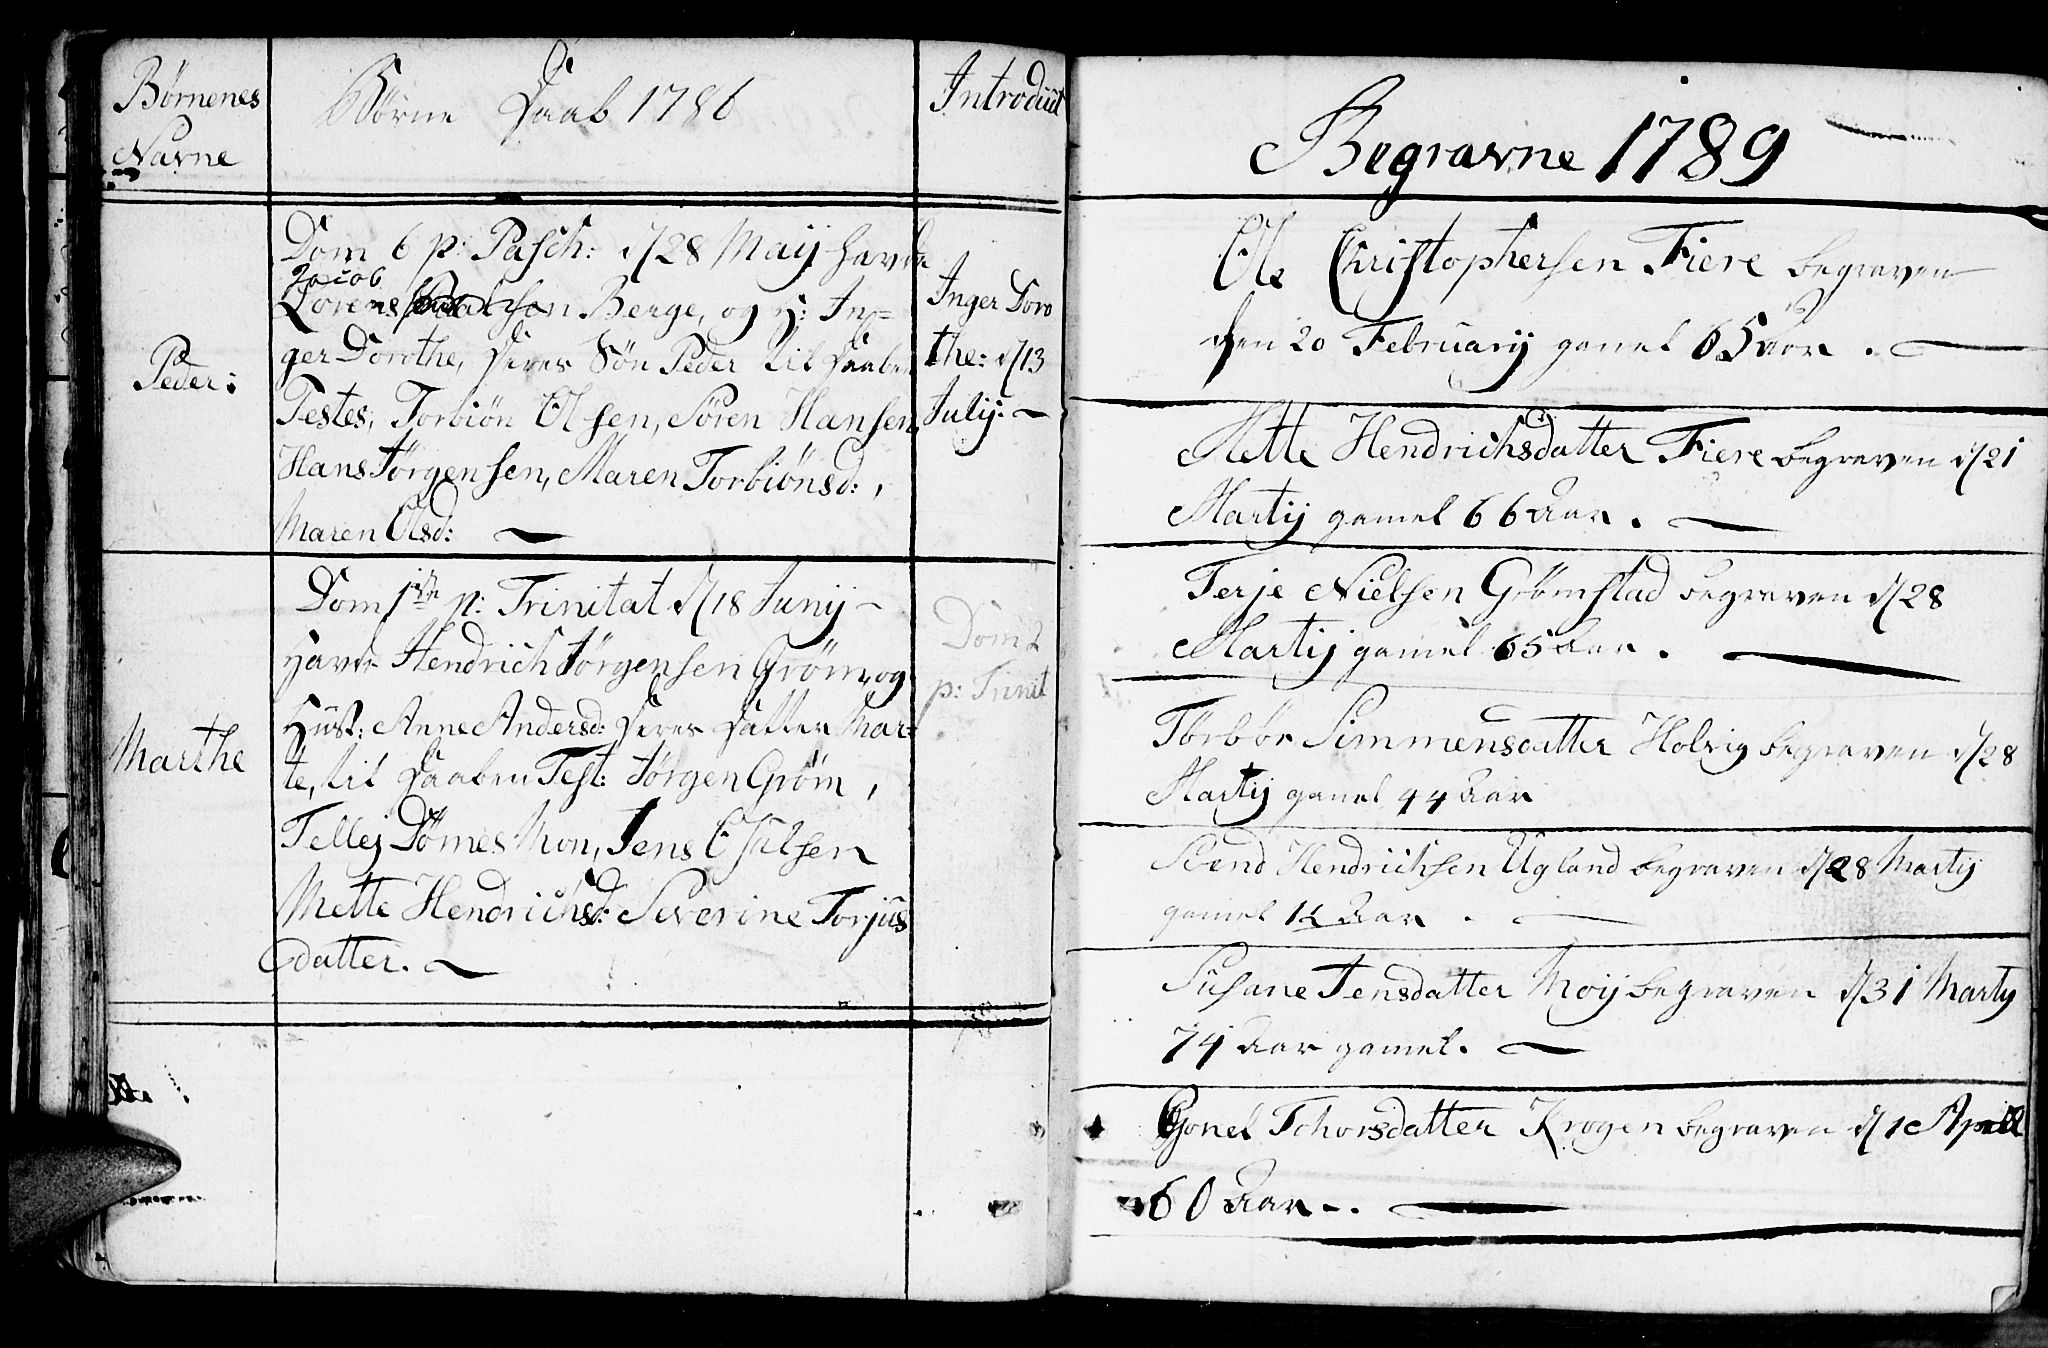 Børnenes
Navne
Børne Daab 1786
Introduct
Peder:
Dom 6 p: Pasch: d/28 Maij havde
Jacob
Lorens Berge, og H: In=
ger Dorothe, deres Søn Peder til Daaben
Testes, Torbiön Olsen, Sören Hansen,
Hans Jörgensen, Maren Torbiönsd:,
Maren Olsd:
Inger Doro
the: d/13
Julij:
Marthe
Dom 1ste p: Trinitat d/18 Junij
havde Hendrich Jörgensen Gröm, og
Hust: Anne Andersd: deres Datter Mar=
te, til Daaben Test: Jörgen Gröm,
Tellej Dömesmon, Jens
Mette Hendrichsd: Severine Torjus
datter.
Dom 2
p: Trinit
Begravne 1789
Ole Christophersen Fiere begraven
den 20 Februarij gamel 65 aar.
Mette Hendrichsdatter Fiere begraven d/21
Martij gamel 66 Aar.
Terje Nielsen Grömstad begraven d/28
Martij gamel 65 Aar.
Törbör Simmensdatter Holvig begraven d/28
Martij gamel 44 Aar
Svend Hendrichsen Ugland begraven d/28 Martij
gamel Aar.
Susane Jensdatter Moij begraven d/31 Martij
74 Aar gamel.
Gonel Tohorsdatter Krogen begraven d/1 April
60 Aar.